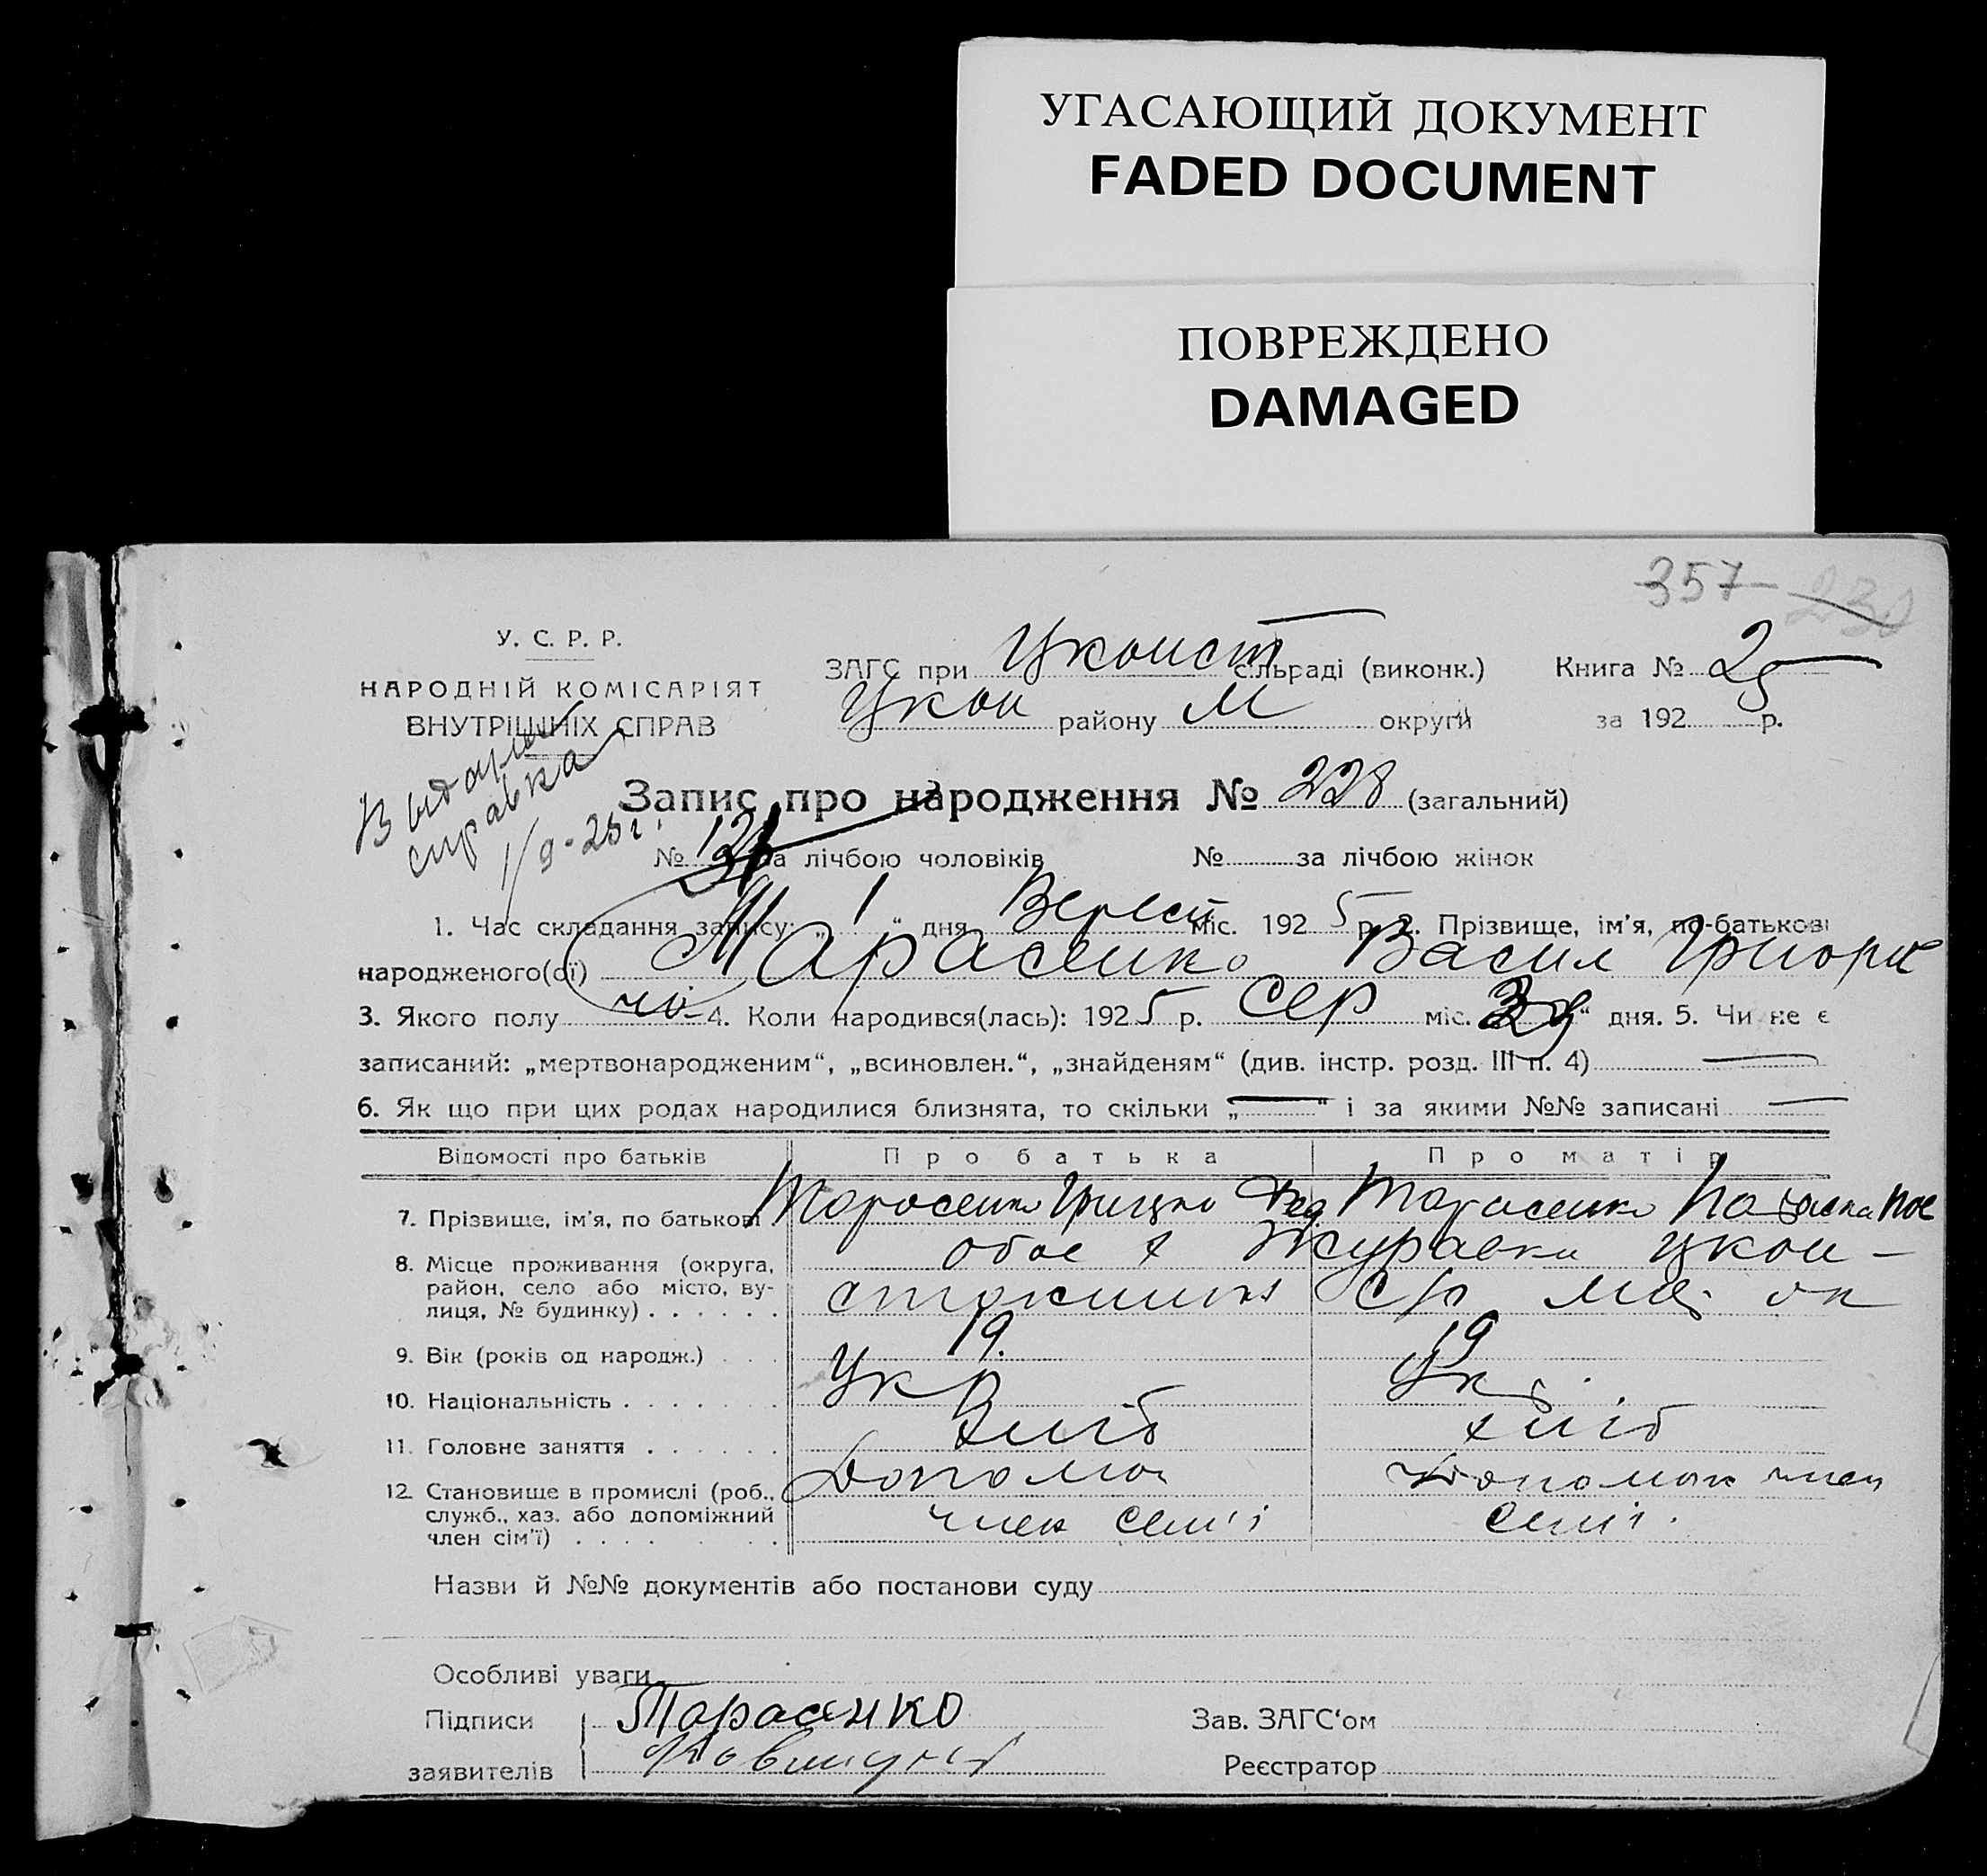 УГАСАЮЩИЙ ДОКУМЕНТ
FADED DOCUMENT
ПОВРЕЖДЕНО
DAMAGED
357 230
У. С. Р. Р.
НАРОДНІЙ КОМІСАРІЯТ
ВНУТРІШНІХ СПРАВ
ЗАГС при сільраді (виконк.) Книга № 2
району М округи за 192 5 р.
Видана
справка
1/9-25 г.
Запис про народження № 228 (загальний)
№ 121 за лічбою чоловіків № за лічбою жінок
1. Час складання запису: „ 1 “ дня Верес міс. 192 5 р. 2. Прізвище, ім'я, по-батькові
народженого(ої) Тарасенко Васил Григоров
3. Якого полу чо 4. Коли народився(лась): 192 5 р. Сер міс. „ “ дня. 5. Чи не є
записаний: „мертвонародженим“, „всиновлен.“, „знайденям“ (див. інстр. розд. III п. 4) —
6. Як що при цих родах народилися близнята, то скільки „ — “ і за якими №№ записані —
Відомості про батьків Про батька Про матір
7. Прізвище, ім'я, по батькові Тарасенко Грицко Фед Тарасенко
8. Місце проживання (округа, район, село або місто, вулиця, № будинку) обоє х Журавка
с/р ок
9. Вік (років од народж.) 19. 19
10. Національність Укр Ук
11. Головне заняття хліб хліб
12. Становище в промислі (роб., служб., хаз. або допоміжний член сім'ї) Допомог Допомож член
член семі семі.
Назви й №№ документів або постанови суду
Особливі уваги
Підписи Тарасенко Зав. ЗАГС'ом
заявителів Реєстратор